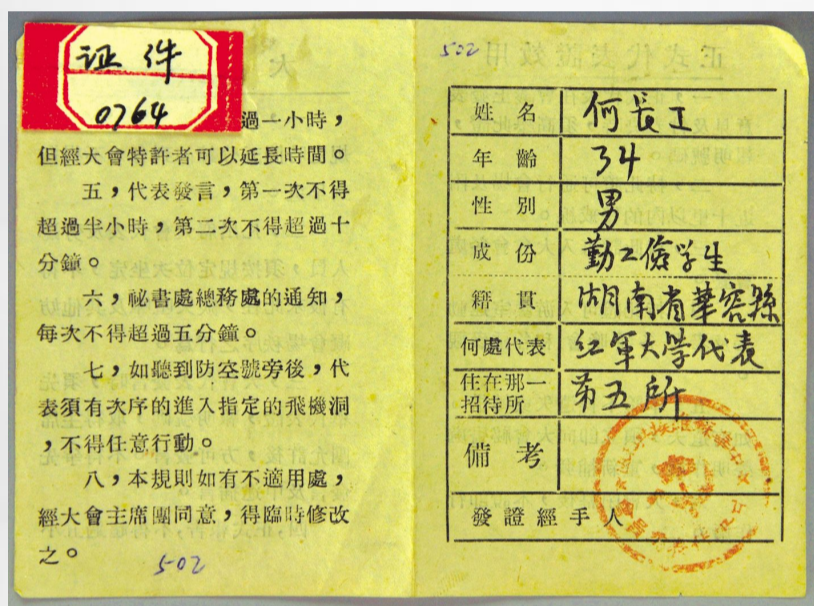 证件
0764
過一小時，
但經大會特許者可以延長時間。
五，代表發言，第一次不得
超過半小時，第二次不得超過十
分鐘。
六，祕書處總務處的通知，
每次不得超過五分鐘。
七，如聽到防空號旁後，代
表須有次序的進入指定的飛機洞
，不得任意行動。
八，本規則如有不適用處，
經大會主席團同意，得臨時修改
之。
502
502
姓名 何長工
年齡 34
性別 男
成份 勤工儉学生
籍貫 湖南省華容縣
何處代表 红軍大学代表
住在那一
招待所 第五所
備考
發證經手人